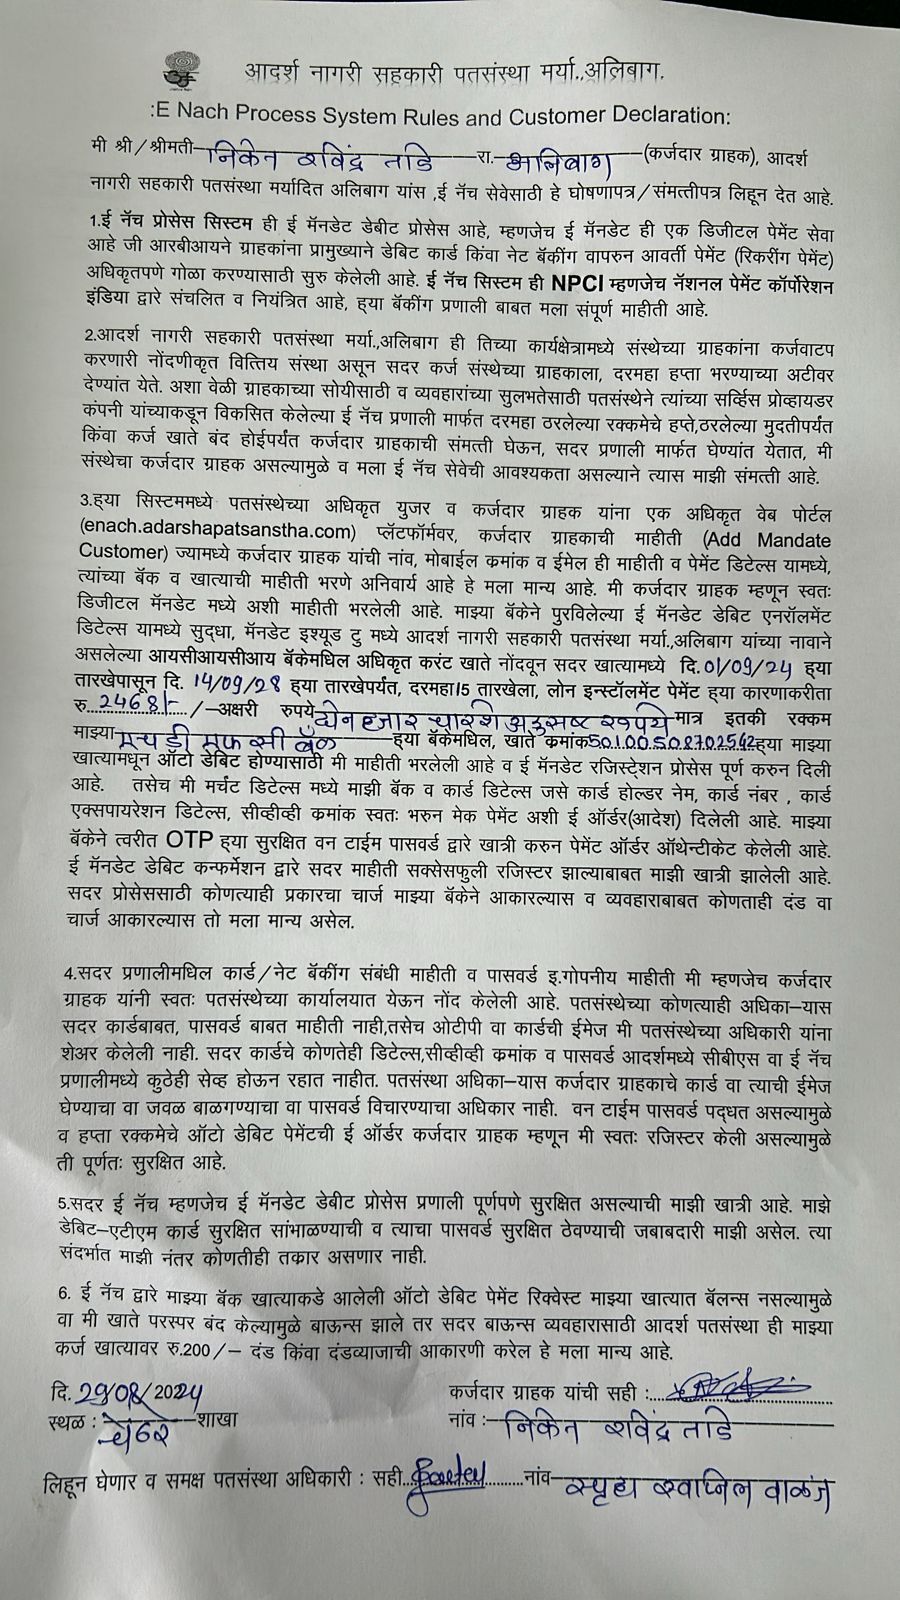 आदर्श नागरी सहकारी पतसंस्था मर्या.,अलिबाग.
:E Nach Process System Rules and Customer Declaration:
मी श्री/श्रीमती निकेन रविंद्र ताडे रा. अलिबाग (कर्जदार ग्राहक), आदर्श
नागरी सहकारी पतसंस्था मर्यादित अलिबाग यांस ,ई नॅच सेवेसाठी हे घोषणापत्र/संमत्तीपत्र लिहून देत आहे.
1.ई नॅच प्रोसेस सिस्टिम ही ई मॅनडेट डेबीट प्रोसेस आहे, म्हणजेच ई मॅनडेट ही एक डिजीटल पेमेंट सेवा
आहे जी आरबीआयने ग्राहकांना प्रामुख्याने डेबिट कार्ड किंवा नेट बॅकींग वापरुन आवर्ती पेमेंट (रिकरींग पेमेंट)
अधिकृतपणे गोळा करण्यासाठी सुरु केलेली आहे. ई नॅच सिस्टिम ही NPCI म्हणजेच नॅशनल पेमेंट कॉर्पोरेशन
इंडिया द्वारे संचलित व नियंत्रित आहे, ह्या बॅकींग प्रणाली बाबत मला संपूर्ण माहीती आहे.
2.आदर्श नागरी सहकारी पतसंस्था मर्या.,अलिबाग ही तिच्या कार्यक्षेत्रामध्ये संस्थेच्या ग्राहकांना कर्जवाटप
करणारी नोंदणीकृत वित्तिय संस्था असून सदर कर्ज संस्थेच्या ग्राहकाला, दरमहा हप्ता भरण्याच्या अटीवर
देण्यांत येते. अशा वेळी ग्राहकाच्या सोयीसाठी व व्यवहारांच्या सुलभतेसाठी पतसंस्थेने त्यांच्या सर्व्हिस प्रोव्हायडर
कंपनी यांच्याकडून विकसित केलेल्या ई नॅच प्रणाली मार्फत दरमहा ठरलेल्या रक्कमेचे हप्ते,ठरलेल्या मुदतीपर्यंत
किंवा कर्ज खाते बंद होईपर्यंत कर्जदार ग्राहकाची संमत्ती घेऊन, सदर प्रणाली मार्फत घेण्यांत येतात, मी
संस्थेचा कर्जदार ग्राहक असल्यामुळे व मला ई नॅच सेवेची आवश्यकता असल्याने त्यास माझी संमत्ती आहे.
3.ह्या सिस्टिममध्ये पतसंस्थेच्या अधिकृत युजर व कर्जदार ग्राहक यांना एक अधिकृत वेब पोर्टल
(enach.adarshapatsanstha.com) प्लॅटफॉर्मवर, कर्जदार ग्राहकाची माहीती (Add Mandate
Customer) ज्यामध्ये कर्जदार ग्राहक यांची नांव, मोबाईल क्रमांक व ईमेल ही माहीती व पेमेंट डिटेल्स यामध्ये,
त्यांच्या बॅक व खात्याची माहीती भरणे अनिवार्य आहे हे मला मान्य आहे. मी कर्जदार ग्राहक म्हणून स्वतः
डिजीटल मॅनडेट मध्ये अशी माहीती भरलेली आहे. माझ्या बॅकेने पुरविलेल्या ई मॅनडेट डेबिट एनरॉलमेंट
डिटेल्स यामध्ये सुद्धा, मॅनडेट इश्यूड टु मध्ये आदर्श नागरी सहकारी पतसंस्था मर्या.,अलिबाग यांच्या नावाने
असलेल्या आयसीआयसीआय बॅकेमधिल अधिकृत करंट खाते नोंदवून सदर खात्यामध्ये दि.01/09/24 ह्या
तारखेपासून दि. 14/09/28 ह्या तारखेपर्यंत, दरमहा15 तारखेला, लोन इन्स्टॉलमेंट पेमेंट ह्या कारणाकरीता
रु 2468/- /–अक्षरी रुपये दोन हजार चारशे अडुसष्ट रुपये मात्र इतकी रक्कम
माझ्या एचडीएफसी बँक ह्या बॅकेमधिल, खाते क्रमांक50100508702542ह्या माझ्या
खात्यामधून ऑटो डेबिट होण्यासाठी मी माहीती भरलेली आहे व ई मॅनडेट रजिस्ट्रेशन प्रोसेस पूर्ण करुन दिली
आहे. तसेच मी मर्चंट डिटेल्स मध्ये माझी बॅक व कार्ड डिटेल्स जसे कार्ड होल्डर नेम, कार्ड नंबर , कार्ड
एक्सपायरेशन डिटेल्स, सीव्हीव्ही क्रमांक स्वतः भरुन मेक पेमेंट अशी ई ऑर्डर(आदेश) दिलेली आहे. माझ्या
बॅकेने त्वरीत OTP ह्या सुरक्षित वन टाईम पासवर्ड द्वारे खात्री करुन पेमेंट ऑर्डर ऑथेन्टीकेट केलेली आहे.
ई मॅनडेट डेबिट कन्फर्मेशन द्वारे सदर माहीती सक्सेसफुली रजिस्टर झाल्याबाबत माझी खात्री झालेली आहे.
सदर प्रोसेससाठी कोणत्याही प्रकारचा चार्ज माझ्या बॅकेने आकारल्यास व व्यवहाराबाबत कोणताही दंड वा
चार्ज आकारल्यास तो मला मान्य असेल.
4.सदर प्रणालीमधिल कार्ड/नेट बॅकींग संबंधी माहीती व पासवर्ड इ.गोपनीय माहीती मी म्हणजेच कर्जदार
ग्राहक यांनी स्वतः पतसंस्थेच्या कार्यालयात येऊन नोंद केलेली आहे. पतसंस्थेच्या कोणत्याही अधिका–यास
सदर कार्डबाबत, पासवर्ड बाबत माहीती नाही,तसेच ओटीपी वा कार्डची ईमेज मी पतसंस्थेच्या अधिकारी यांना
शेअर केलेली नाही. सदर कार्डचे कोणतेही डिटेल्स,सीव्हीव्ही क्रमांक व पासवर्ड आदर्शमध्ये सीबीएस वा ई नॅच
प्रणालीमध्ये कुठेही सेव्ह होऊन रहात नाहीत. पतसंस्था अधिका–यास कर्जदार ग्राहकाचे कार्ड वा त्याची ईमेज
घेण्याचा वा जवळ बाळगण्याचा वा पासवर्ड विचारण्याचा अधिकार नाही. वन टाईम पासवर्ड पद्धत असल्यामुळे
व हप्ता रक्कमेचे ऑटो डेबिट पेमेंटची ई ऑर्डर कर्जदार ग्राहक म्हणून मी स्वतः रजिस्टर केली असल्यामुळे
ती पूर्णतः सुरक्षित आहे.
5.सदर ई नॅच म्हणजेच ई मॅनडेट डेबीट प्रोसेस प्रणाली पूर्णपणे सुरक्षित असल्याची माझी खात्री आहे. माझे
डेबिट–एटीएम कार्ड सुरक्षित सांभाळण्याची व त्याचा पासवर्ड सुरक्षित ठेवण्याची जबाबदारी माझी असेल. त्या
संदर्भात माझी नंतर कोणतीही तक्रार असणार नाही.
6. ई नॅच द्वारे माझ्या बॅक खात्याकडे आलेली ऑटो डेबिट पेमेंट रिक्वेस्ट माझ्या खात्यात बॅलन्स नसल्यामुळे
वा मी खाते परस्पर बंद केल्यामुळे बाऊन्स झाले तर सदर बाऊन्स व्यवहारासाठी आदर्श पतसंस्था ही माझ्या
कर्ज खात्यावर रु.200/– दंड किंवा दंडव्याजाची आकारणी करेल हे मला मान्य आहे.
दि. 29/08/2024 कर्जदार ग्राहक यांची सही :
स्थळ : चेंढरे शाखा नांव :– निकेन रविंद्र ताडे
लिहून घेणार व समक्ष पतसंस्था अधिकारी : सही नांव स्पृहा स्वाप्निल वाळंज